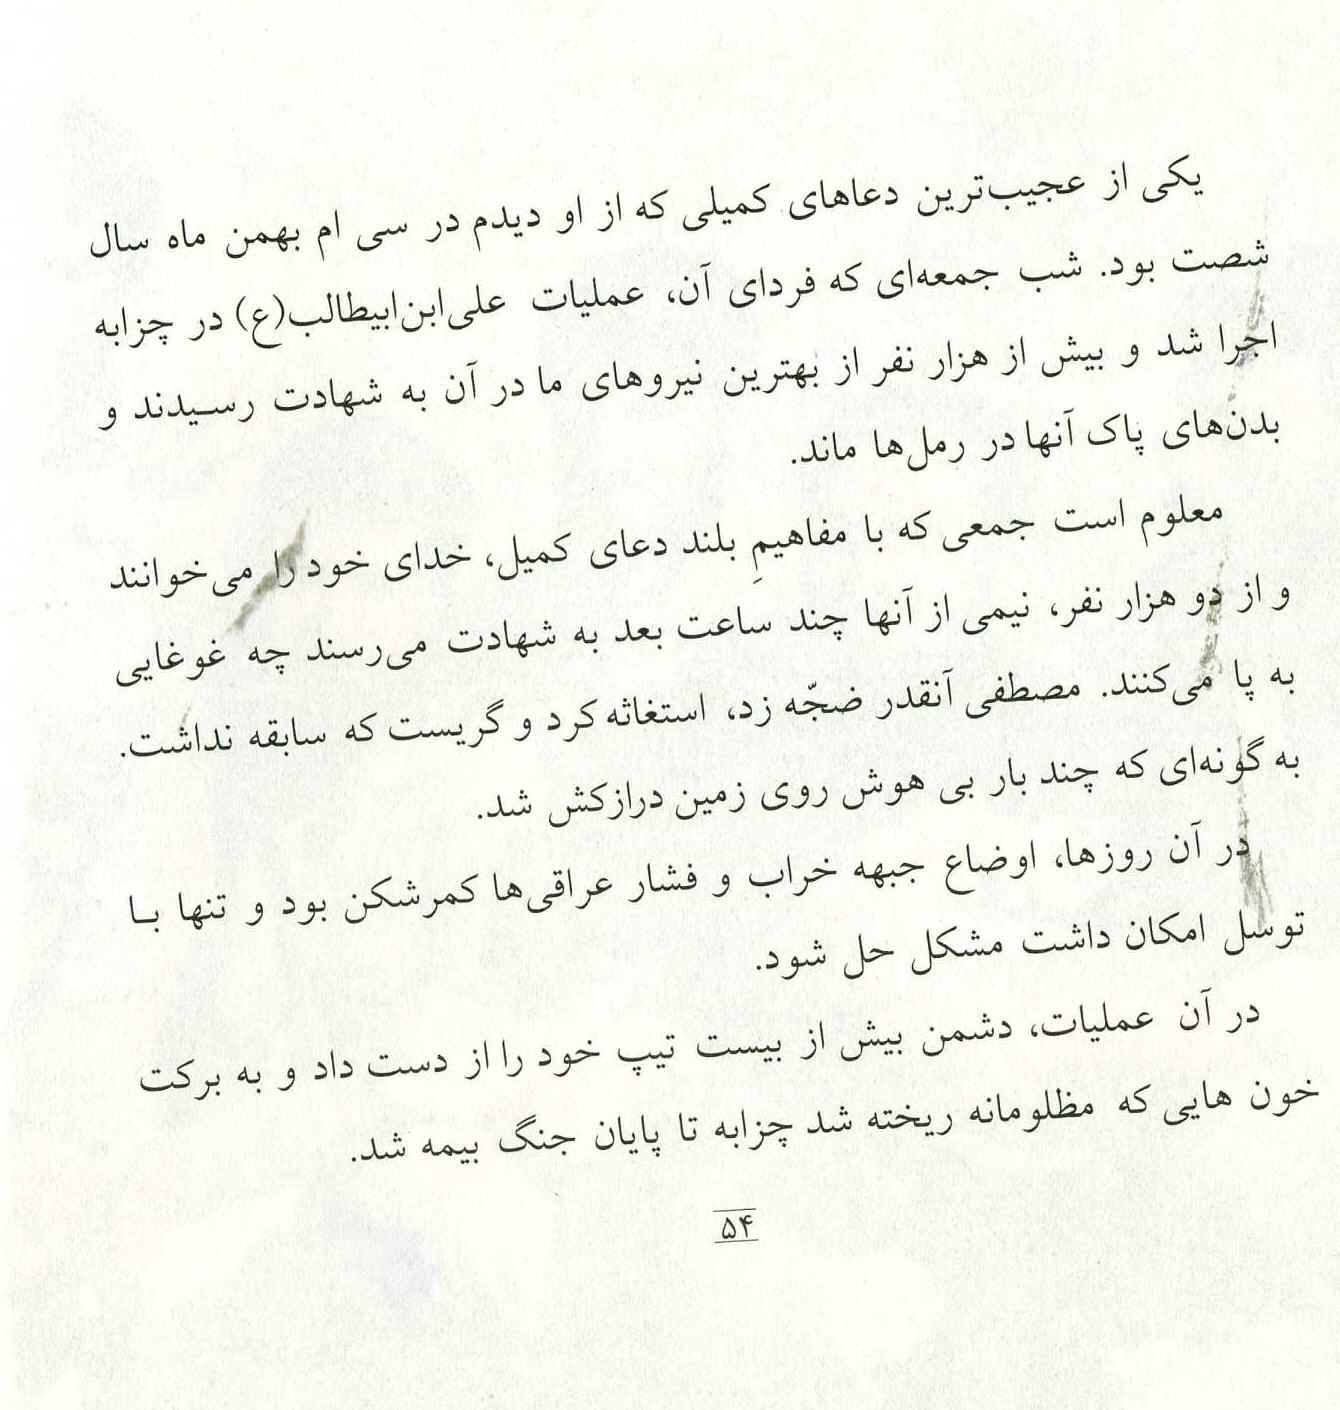 یکی از عجیب‌ترین دعاهای کمیلی که از او دیدم در سی ام بهمن ماه سال
شصت بود. شب جمعه‌ای که فردای آن، عملیات علی‌ابن‌ابیطالب(ع) در چزابه
اجرا شد و بیش از هزار نفر از بهترین نیروهای ما در آن به شهادت رسیدند و
بدن‌های پاک آنها در رمل‌ها ماند.
معلوم است جمعی که با مفاهیمِ بلند دعای کمیل، خدای خود را می‌خوانند
و از دو هزار نفر، نیمی از آنها چند ساعت بعد به شهادت می‌رسند چه غوغایی
به پا می‌کنند. مصطفی آنقدر ضجّه زد، استغاثه کرد و گریست که سابقه نداشت.
به گونه‌ای که چند بار بی هوش روی زمین درازکش شد.
در آن روزها، اوضاع جبهه خراب و فشار عراقی‌ها کمرشکن بود و تنها با
توسل امکان داشت مشکل حل شود.
در آن عملیات، دشمن بیش از بیست تیپ خود را از دست داد و به برکت
خون هایی که مظلومانه ریخته شد چزابه تا پایان جنگ بیمه شد.
۵۴